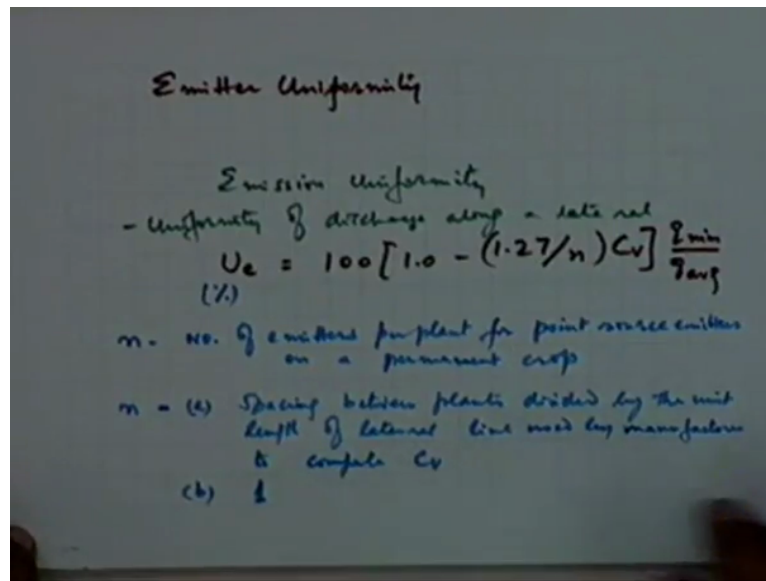 Emitter Uniformity
Emission Uniformity
- Uniformity of discharge along a lateral
Ue = 100 [1.0 - (1.27/n) Cv] qmin/qavg
(%)
n - No. of emitters per plant for point source emitters
on a permanent crop
n - (a) Spacing between plants divided by the unit
length of lateral line used by manufacturer
to compute Cv
(b) 1